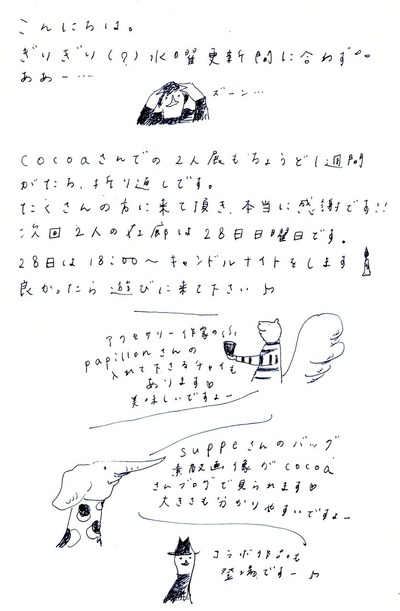 こんにちは。
ぎりぎり(?)水曜更新間に合わず。。
ああー…
ズーン…
cocoaさんでの2人展もちょうど1週間
がたち、折り返しです。
たくさんの方に来て頂き、本当に感謝です!!
次回2人の在廊は28日日曜日です。
28日は18:00〜キャンドルナイトをします
良かったら遊びに来て下さい♪
アクセサリー作家の
papillonさんの
入れて下さるチャイも
あります♡
美味しいですよー
suppeさんのバッグ
素敵画像がcocoa
さんブログで見られます♡
大きさも分かりやすいですよー
コラボ作品も
登場ですー♪